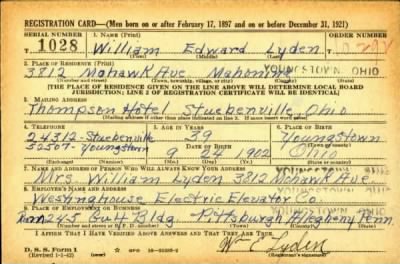 REGISTRATION CARD—(Men born on or after February 17, 1897 and on or before December 31, 1921)
SERIAL NUMBER 1. NAME (Print) ORDER NUMBER
1028 William Edward Lyden
(First) (Middle) (Last)
2. PLACE OF RESIDENCE (Print) YOUNGSTOWN, OHIO
3812 Mohawk Ave Mahoning
(Number and street) (Town, township, village, or city) (County) (State)
[THE PLACE OF RESIDENCE GIVEN ON THE LINE ABOVE WILL DETERMINE LOCAL BOARD
JURISDICTION; LINE 2 OF REGISTRATION CERTIFICATE WILL BE IDENTICAL]
3. MAILING ADDRESS
Thompson Hotel Stuebenville, Ohio
[Mailing address if other than place indicated on line 2. If same insert word same]
4. TELEPHONE 5. AGE IN YEARS 6. PLACE OF BIRTH
24312-Stuebenville 39 Youngstown
32507-Youngstown DATE OF BIRTH
9 1902 Ohio
(Exchange) (Number) (Mo.) (Day) (Yr.) (State or country)
7. NAME AND ADDRESS OF PERSON WHO WILL ALWAYS KNOW YOUR ADDRESS
Mrs William Lyden 3812 Mohawk Ave
8. EMPLOYER'S NAME AND ADDRESS YOUNGSTOWN, OHIO
Westinghouse Electric Elevator Co.
9. PLACE OF EMPLOYMENT OR BUSINESS
Rm 245 Gulf Bldg. Pittsburgh Allegheny Penn.
(Number and street or R. F. D. number) (Town) (County) (State)
I AFFIRM THAT I HAVE VERIFIED ABOVE ANSWERS AND THAT THEY ARE TRUE.
D. S. S. Form 1
(Revised 1-1-42) (over) GPO
Wm E. Lyden
(Registrant's signature)